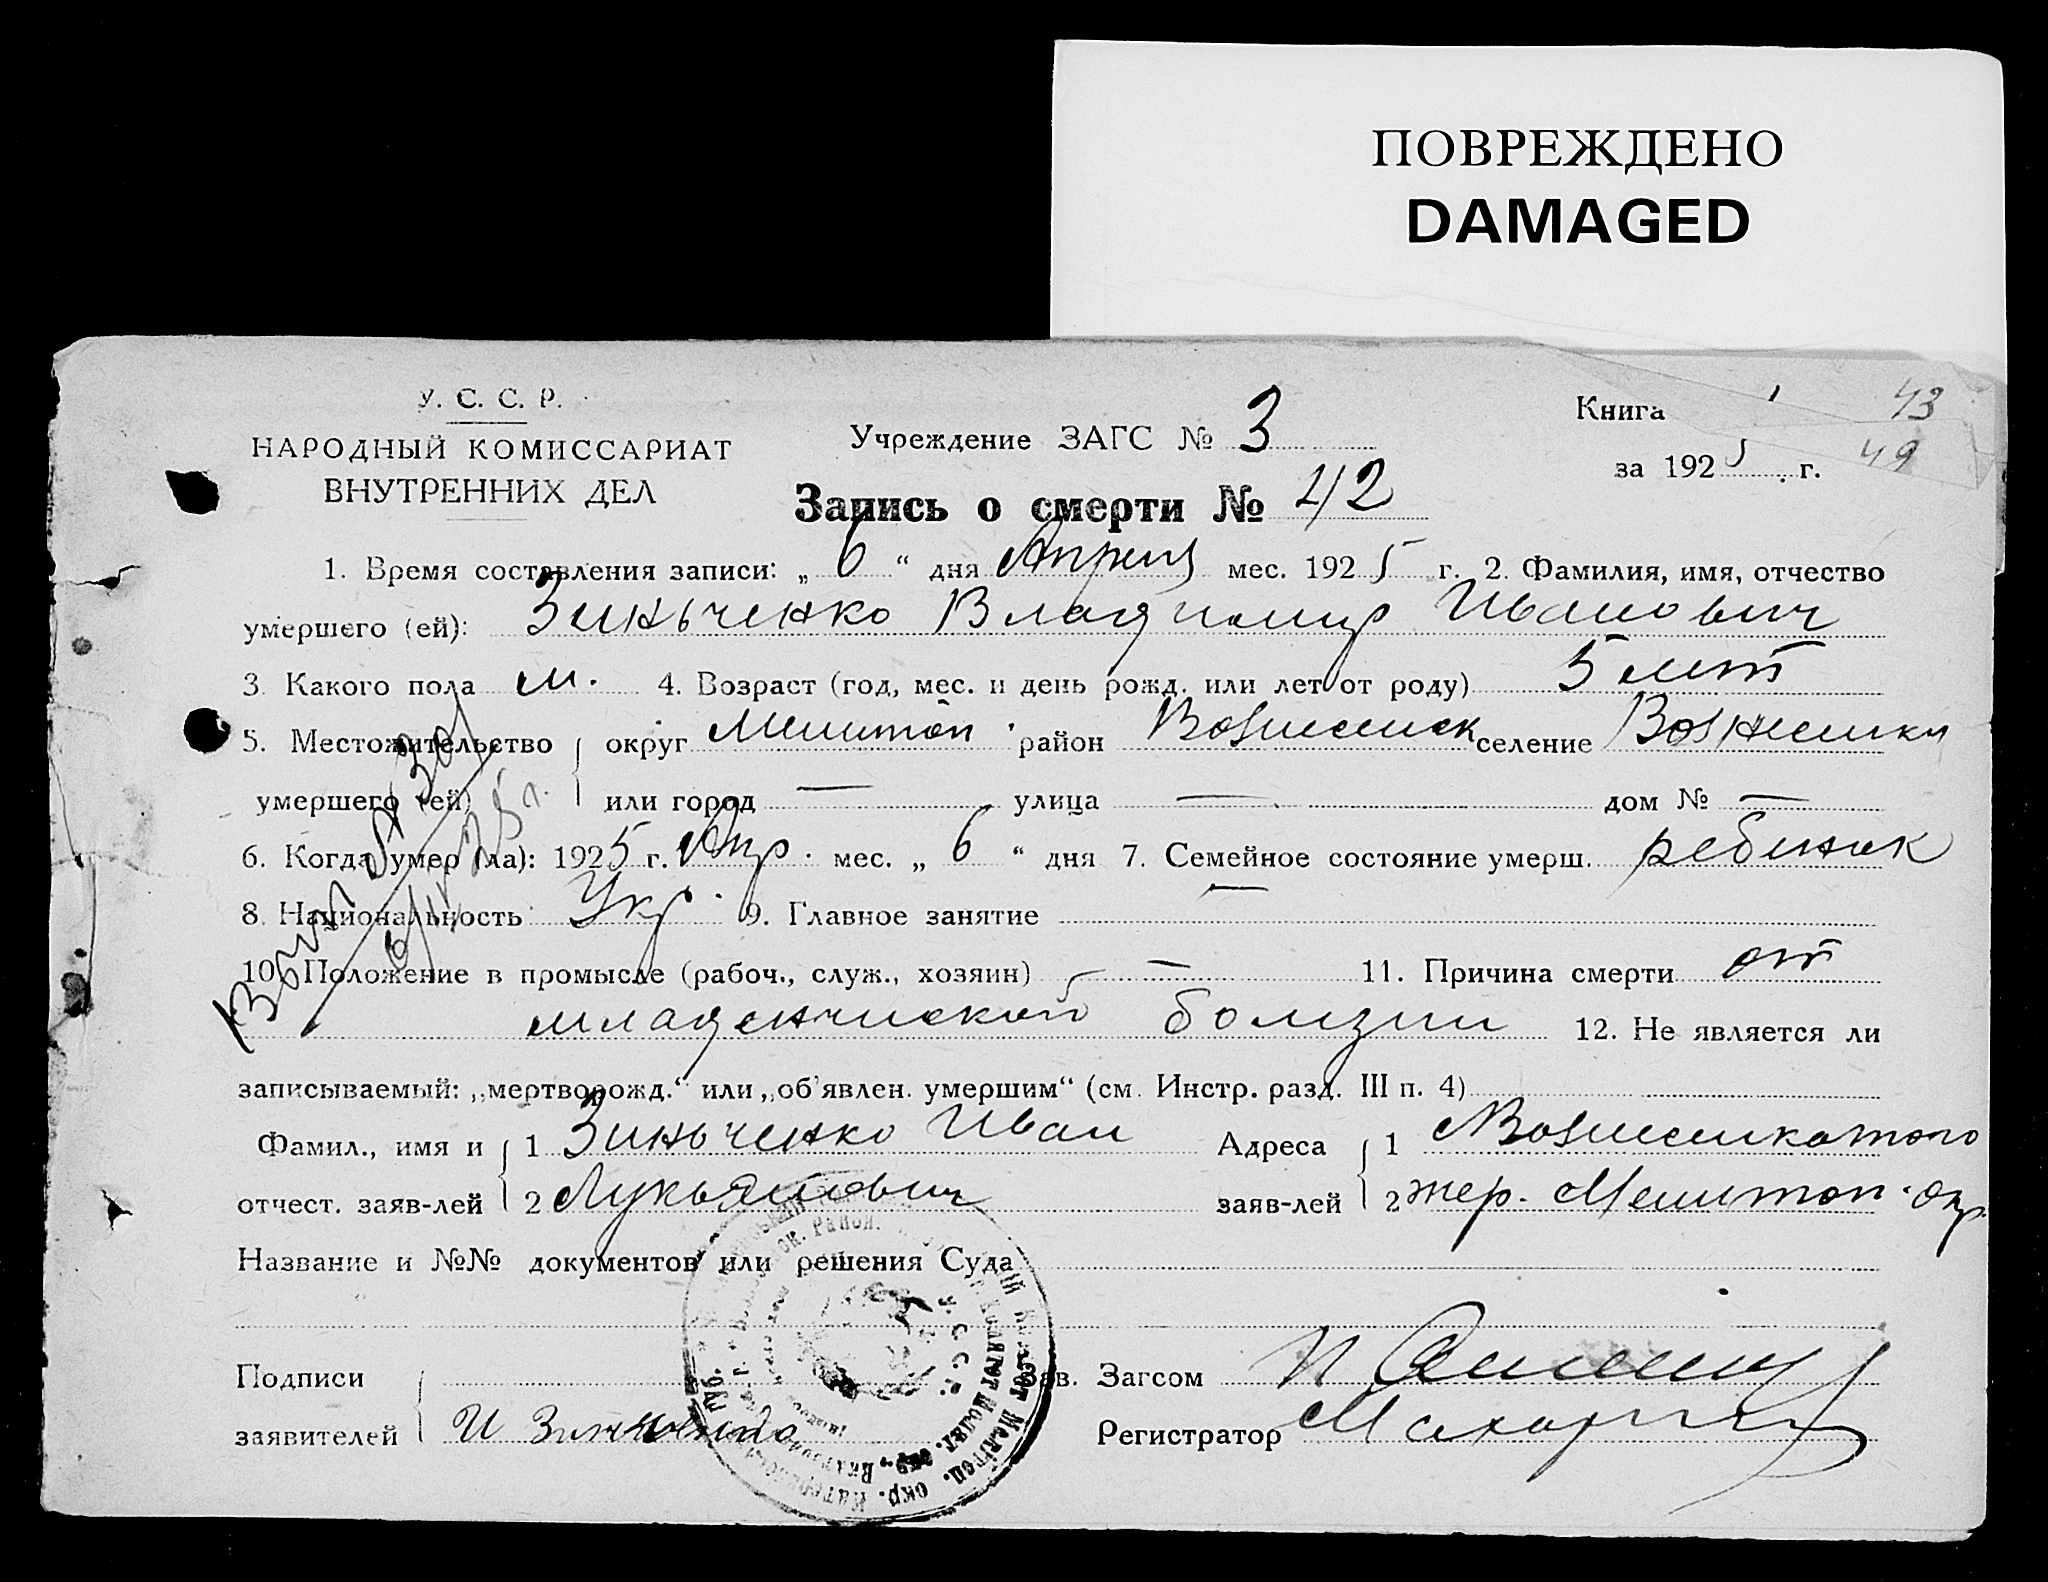 ПОВРЕЖДЕНО
DAMAGED
У. С. С. Р.
НАРОДНЫЙ КОМИССАРИАТ
ВНУТРЕННИХ ДЕЛ
Учреждение ЗАГС № 3
Книга 1 43
за 1925 г. 49
Запись о смерти № 42
1. Время составления записи: „6“ дня Апреля мес. 1925 г. 2. Фамилия, имя, отчество
умершего (ей): Зинченко Владимир Иванович
3. Какого пола м. 4. Возраст (год, мес. и день рожд. или лет от роду) 5 лет
5. Местожительство округ Мелитоп. район Вознесенск селение Вознесенка
умершего (ей) или город — улица — дом № —
6. Когда умер (ла): 1925 г. Апр. мес. „6“ дня 7. Семейное состояние умерш. ребенок
8. Национальность Укр. 9. Главное занятие —
10. Положение в промысле (рабоч., служ., хозяин) — 11. Причина смерти от
младенческой болезни 12. Не является ли
записываемый: „мертворожд.“ или „об'явлен. умершим“ (см. Инстр. разд. III п. 4)
Фамил., имя и 1 Зиньченко Иван Адреса 1
отчест. заяв-лей 2 Лукьянович заяв-лей 2 Мелитоп. окр.
Название и №№ документов или решения Суда
Подписи Зав. Загсом
заявителей И Зинченко Регистратор
У. С. С. Р.